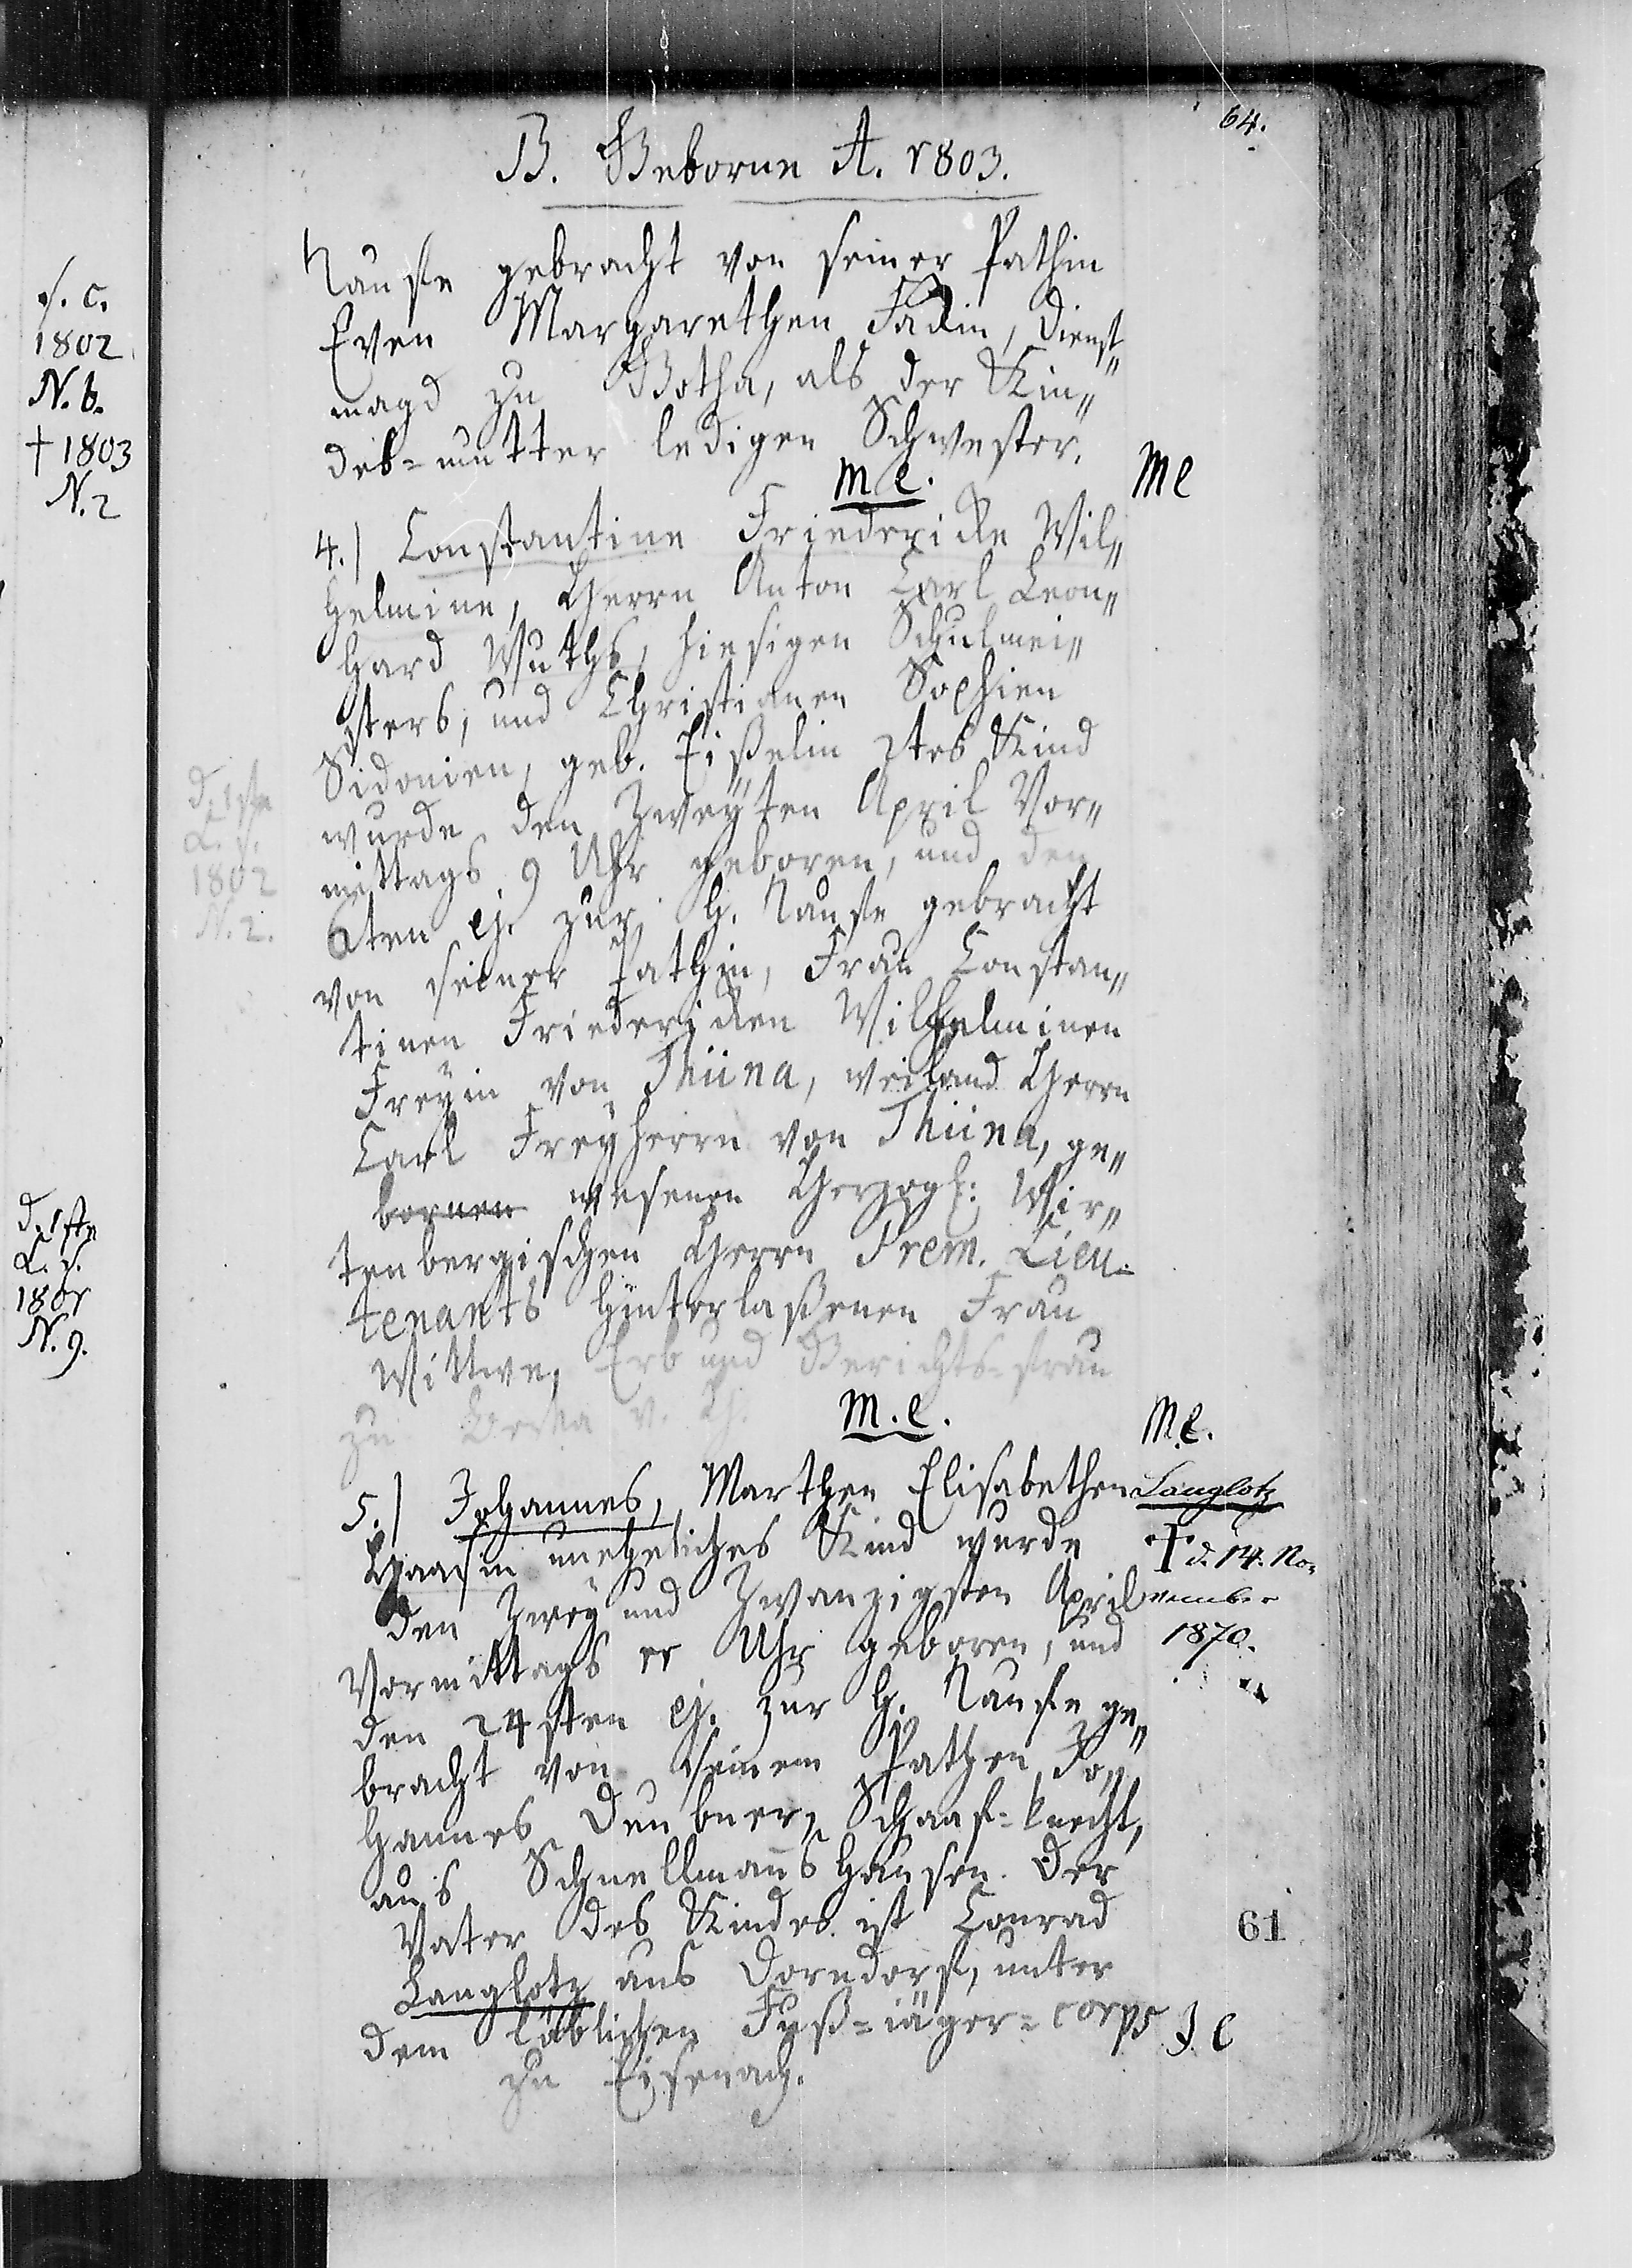 64.
B. Geborne A. 1803.
Taufe gebracht von seiner Pathin
Even Margarethen Fackin, Dienst„
magd zu Gotha, als der Kin„
des-mutter ledigen Schwester.
m e.
me
4.) Constantine Friedericke Wil„
helmine, Herrn Anton Carl Leon„
hard Wuths, hiesigen Schulmei„
sters, und Christianen Sophien
Sidonien, geb. Eißelin 2tes Kind
wurde den Zweyten April Vor„
mittags 9 Uhr geboren, und den
6ten ej. zur h. Taufe gebracht
von seiner Pathin, Frau Constan„
tinen Friedericken Wilhelminen
Freyin von Thüna, weiland Herrn
Carl Freyherrn von Thüna, ge„
bornen wesenen Herzogl: Wir„
tenbergischen Herrn Prem. Lieu-
tenants hinterlaßenen Frau
Wittwe, Erb und Gerichts-frau
zu v. h.
m. e.
M.e.
5.) Johannes, Marthen Elisabethen
Haasin uneheliches Kind wurde
den Zwey und Zwanzigsten April
Vormittags 11 Uhr geboren, und
den 24sten ej. zur h. Taufe ge„
bracht von seinem Pathen Jo„
hannes Deubner, Schaaf-knecht,
aus Schnellmañshausen. Der
Vater des Kindes ist Conrad
Langlotz aus Dorndorf, unter
dem löblichen Fuß-jäger-corps
zu Eisenach.
J. e
Langlotz
† d. 14. No-
vember
1870.
61
s. c.
1802
N. 6.
† 1803
N. 2
d. 1ste
L. s.
1802
N. 2.
d. 1ste
L. s.
1801
N. 9.